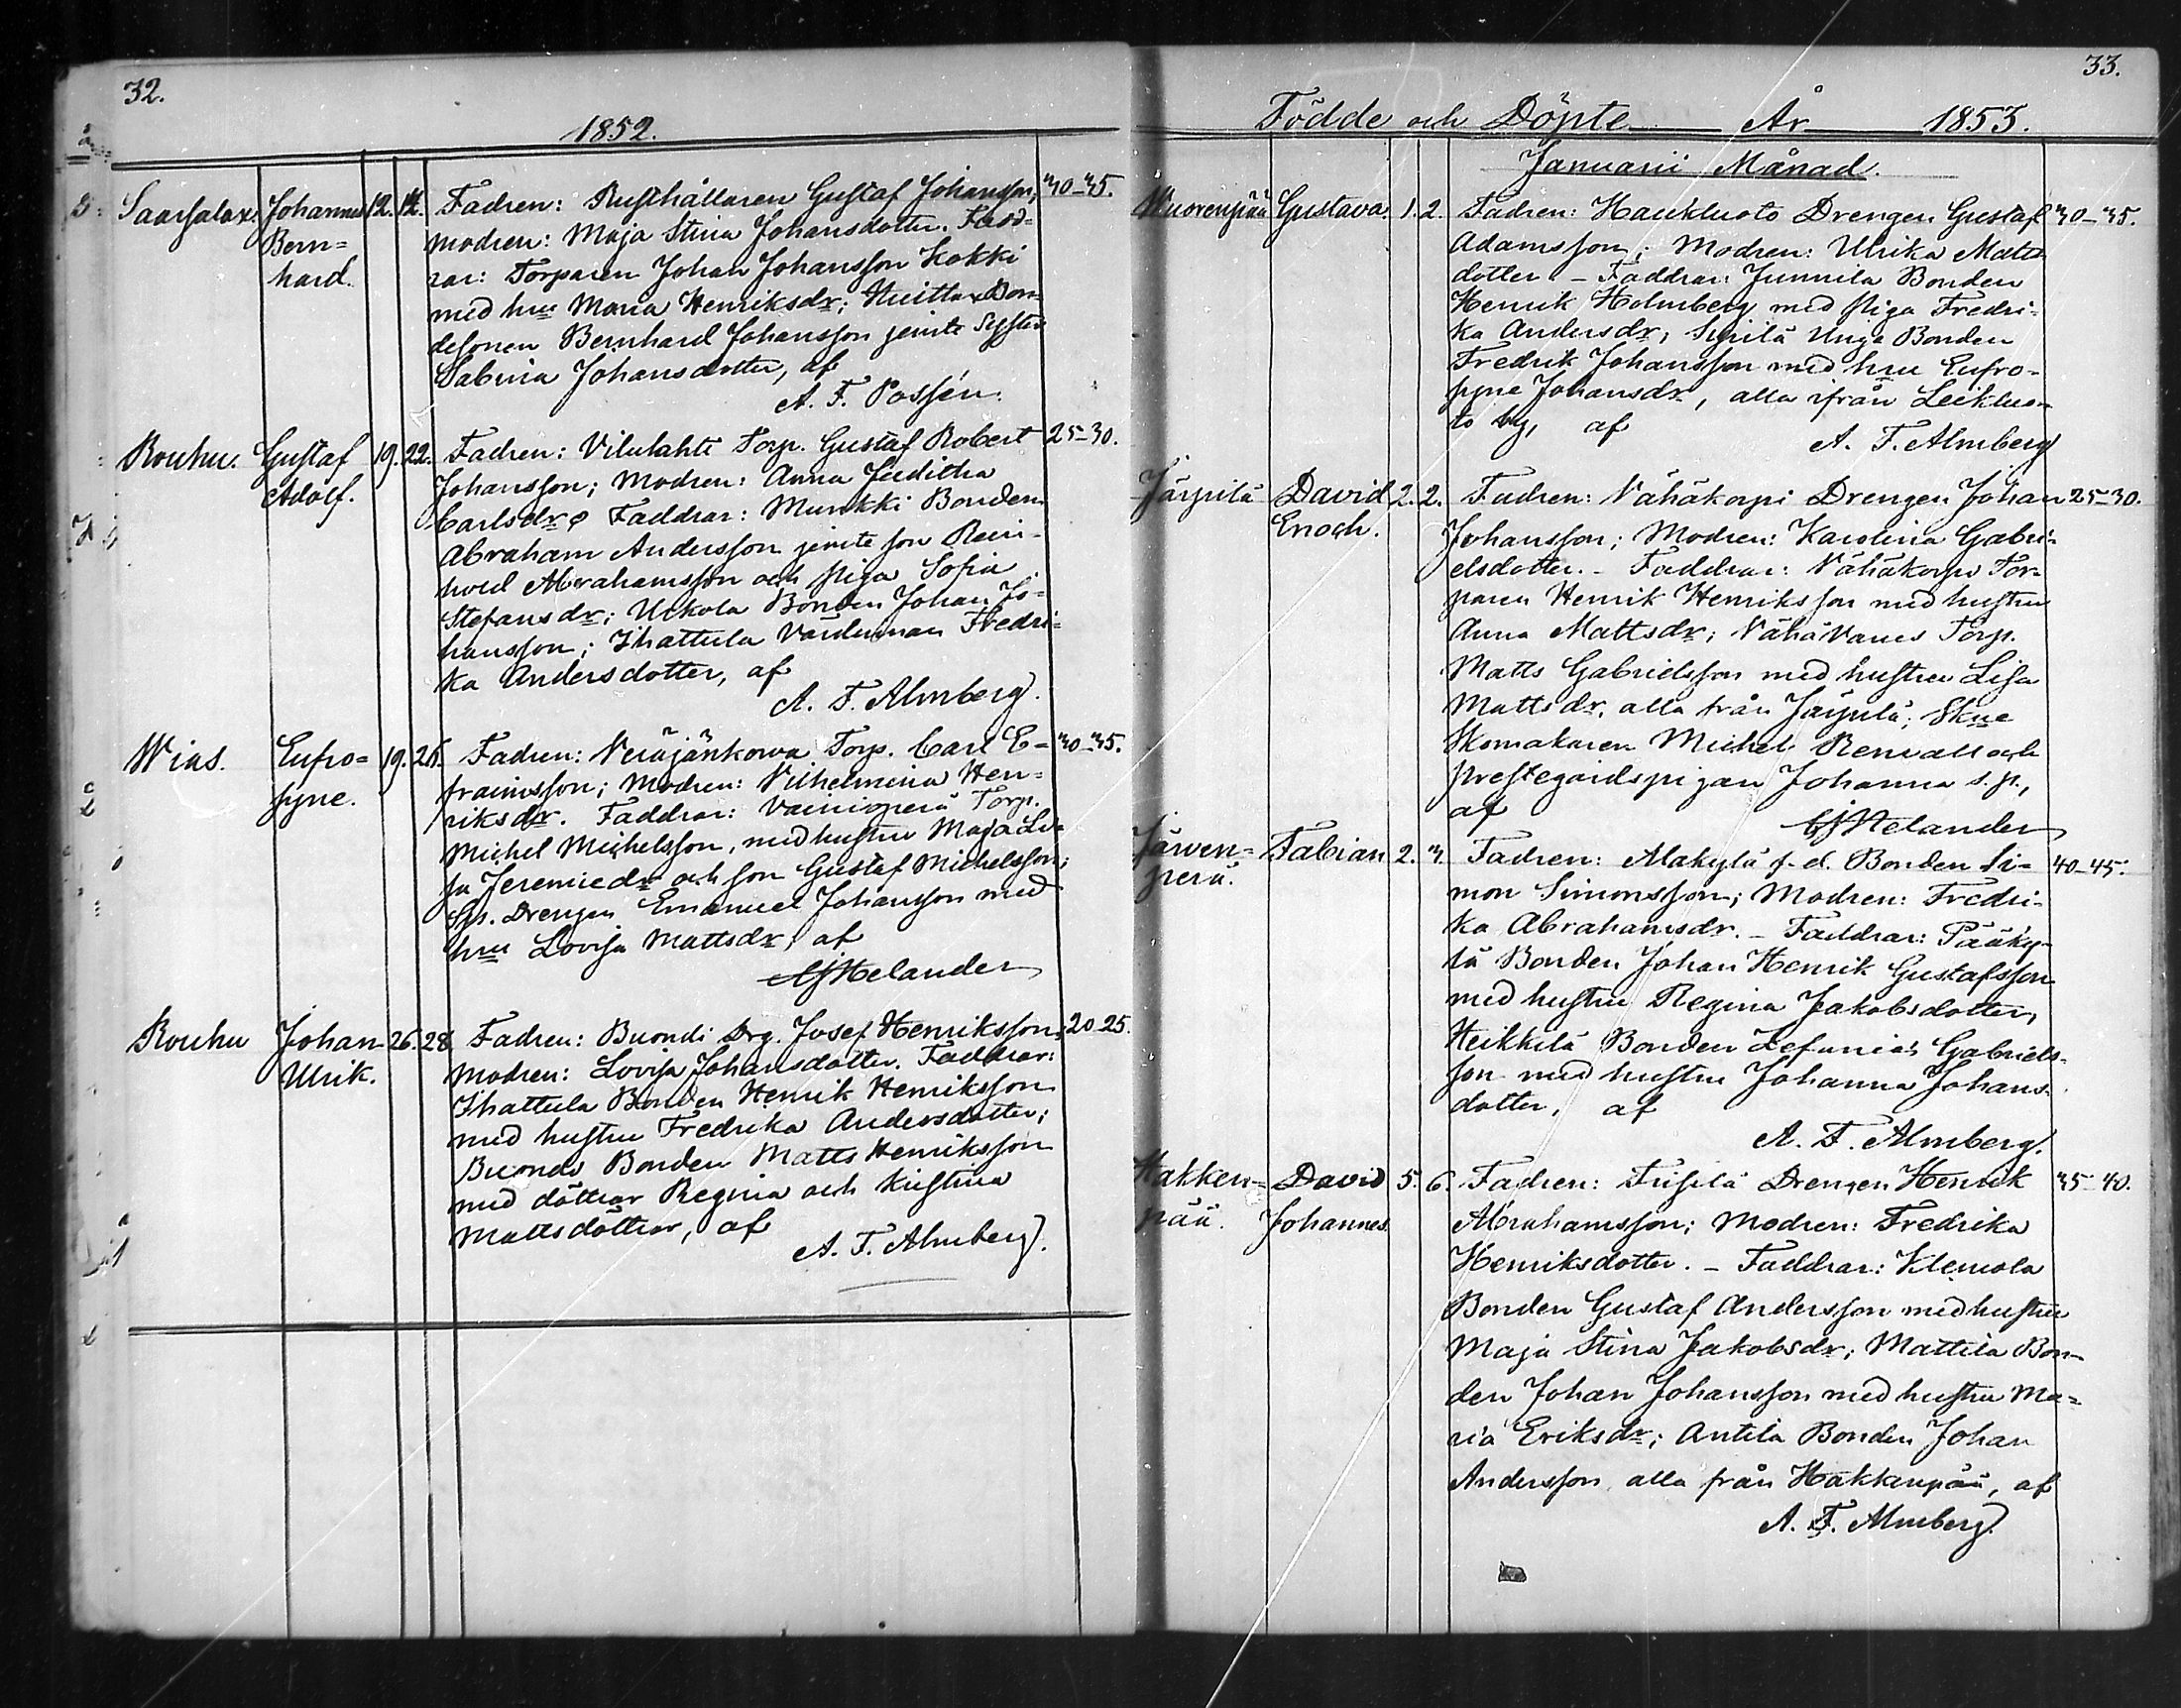 32.
1852.
Saarsalax. Johannes 12. 14. Fadren: Rusthållaren Gustaf Johansson, 30-35.
Bern= modren: Maja Stina Johansdotter. Fadd=
hard. rar: Torparen Johan Johansson Kokki
med hru Maria Henriksdr; Huittax Bon=
desonen Bernhard Johansson jemte Syster
Sabina Johansdotter, af
A. F. Possén.
Rouhu. Gustaf 19. 22. Fadren: Vilulahti Torp. Gustaf Robert 25-30.
Adolf. Johansson; Modren: Anna Juditha
Carlsdr. Faddrar: Munkki Bonden
Abraham Andersson jemte son Rein-
hold Abrahamsson och piga Sofia
Stefansdr; Uckola Bonden Johan Jo=
hansson; Ihattula Värdinnan Fredri=
ka Andersdotter, af
A. F. Almberg.
Wias. Eufro= 19. 26. Fadren: Veräjänkorva Torp. Carl E= 30-35.
syne. fraimsson; Modren: Vilhelmina Hen=
riksdr. Faddrar: Vainionperä Torp.
Michel Michelsson, med hustru Maja Li=
sa Jeremiedr och son Gustaf Michelsson;
Drengen Emanuel Johansson med
hru Lovisa Mattsdr, af
CJHelander
Rouhu Johan 26. 28. Fadren: Buondi Drg. Josef Henriksson; 20-25.
Ulrik. Modren: Lovisa Johansdotter. Faddrar:
Ihattula Bonden Henrik Henriksson
med hustru Fredrika Andersdotter;
Buondi Bonden Matts Henriksson
med döttrar Regina och Kristina
Mattsdöttrar, af
A. F. Almberg.
33.
Födde och Döpte År 1853.
Januarii Månad.
Wuorenpää Gustava 1. 2. Fadren: Haukluoto Drengen Gustaf 30-35.
Adamsson; Modren: Ulrika Matts
dotter - Faddrar: Junnila Bonden
Henrik Holmberg med piga Fredri-
ka Andersdr; Syrilä Unga Bonden
Fredrik Johansson med hru Eufro-
syne Johansdr, alla ifrån Leikluo-
to by, af
A. F. Almberg
Järpilä David 2. 2. Fadren: Vähäkorpi Drengen Johan 25-30.
Enoch. Johansson; Modren: Karolina Gabri-
elsdotter. - Faddrar: Vähäkorpi Tor-
paren Henrik Henriksson med hustru
Anna Mattsdr; Vähävanis Torp.
Matts Gabrielsson med hustru Lisa
Mattsdr, alla från Järpilä;
Skomakaren Michel Renvall och
prestegårdspigan Johanna s. p.,
af
CJHelander
Järven= Fabian 2. 3. Fadren: Alakylä f. d. Bonden Si= 40-45.
perä. mon Simonsson; Modren: Fredri-
ka Abrahamsdr. - Faddrar: Pääky-
lä Bonden Johan Henrik Gustafsson
med hustru Regina Jakobsdotter,
Heikkilä Bonden Zefanias Gabriels-
son med hustru Johanna Johans-
dotter, af
A. F. Almberg.
Hakken= David 5. 6. Fadren: Tusilä Drengen Henrik 35-40.
pää. Johannes Abrahamsson; Modren: Fredrika
Henriksdotter. - Faddrar: Klemola
Bonden Gustaf Andersson med hustru
Maja Stina Jakobsdr; Mattila Bon-
den Johan Johansson med hustru Ma=
ria Eriksdr; Antila Bonden Johan
Andersson, alla från Hakkenpää, af
A. F. Almberg.